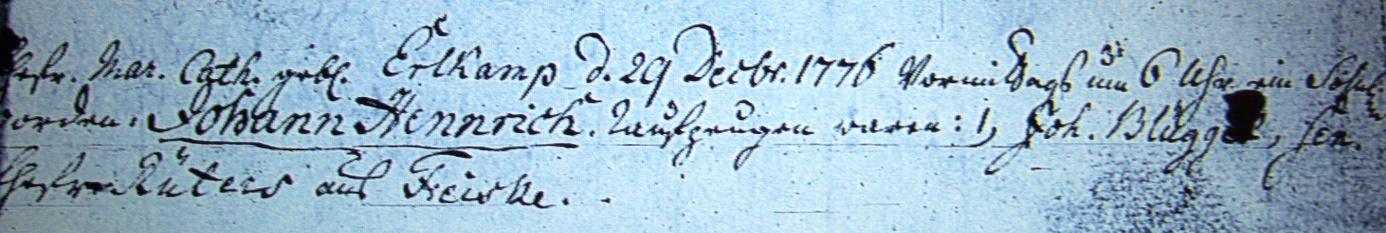 Ehefr. Mar. Cath. gebl. Erlkamp d. 29 Decbr. 1776 Vormittags um 6 Uhr ein Söhnl.
worden: Johann Hennrich. Taufzeugen waren: 1, Joh. Blügg sen.
Ehefr Rüters aus